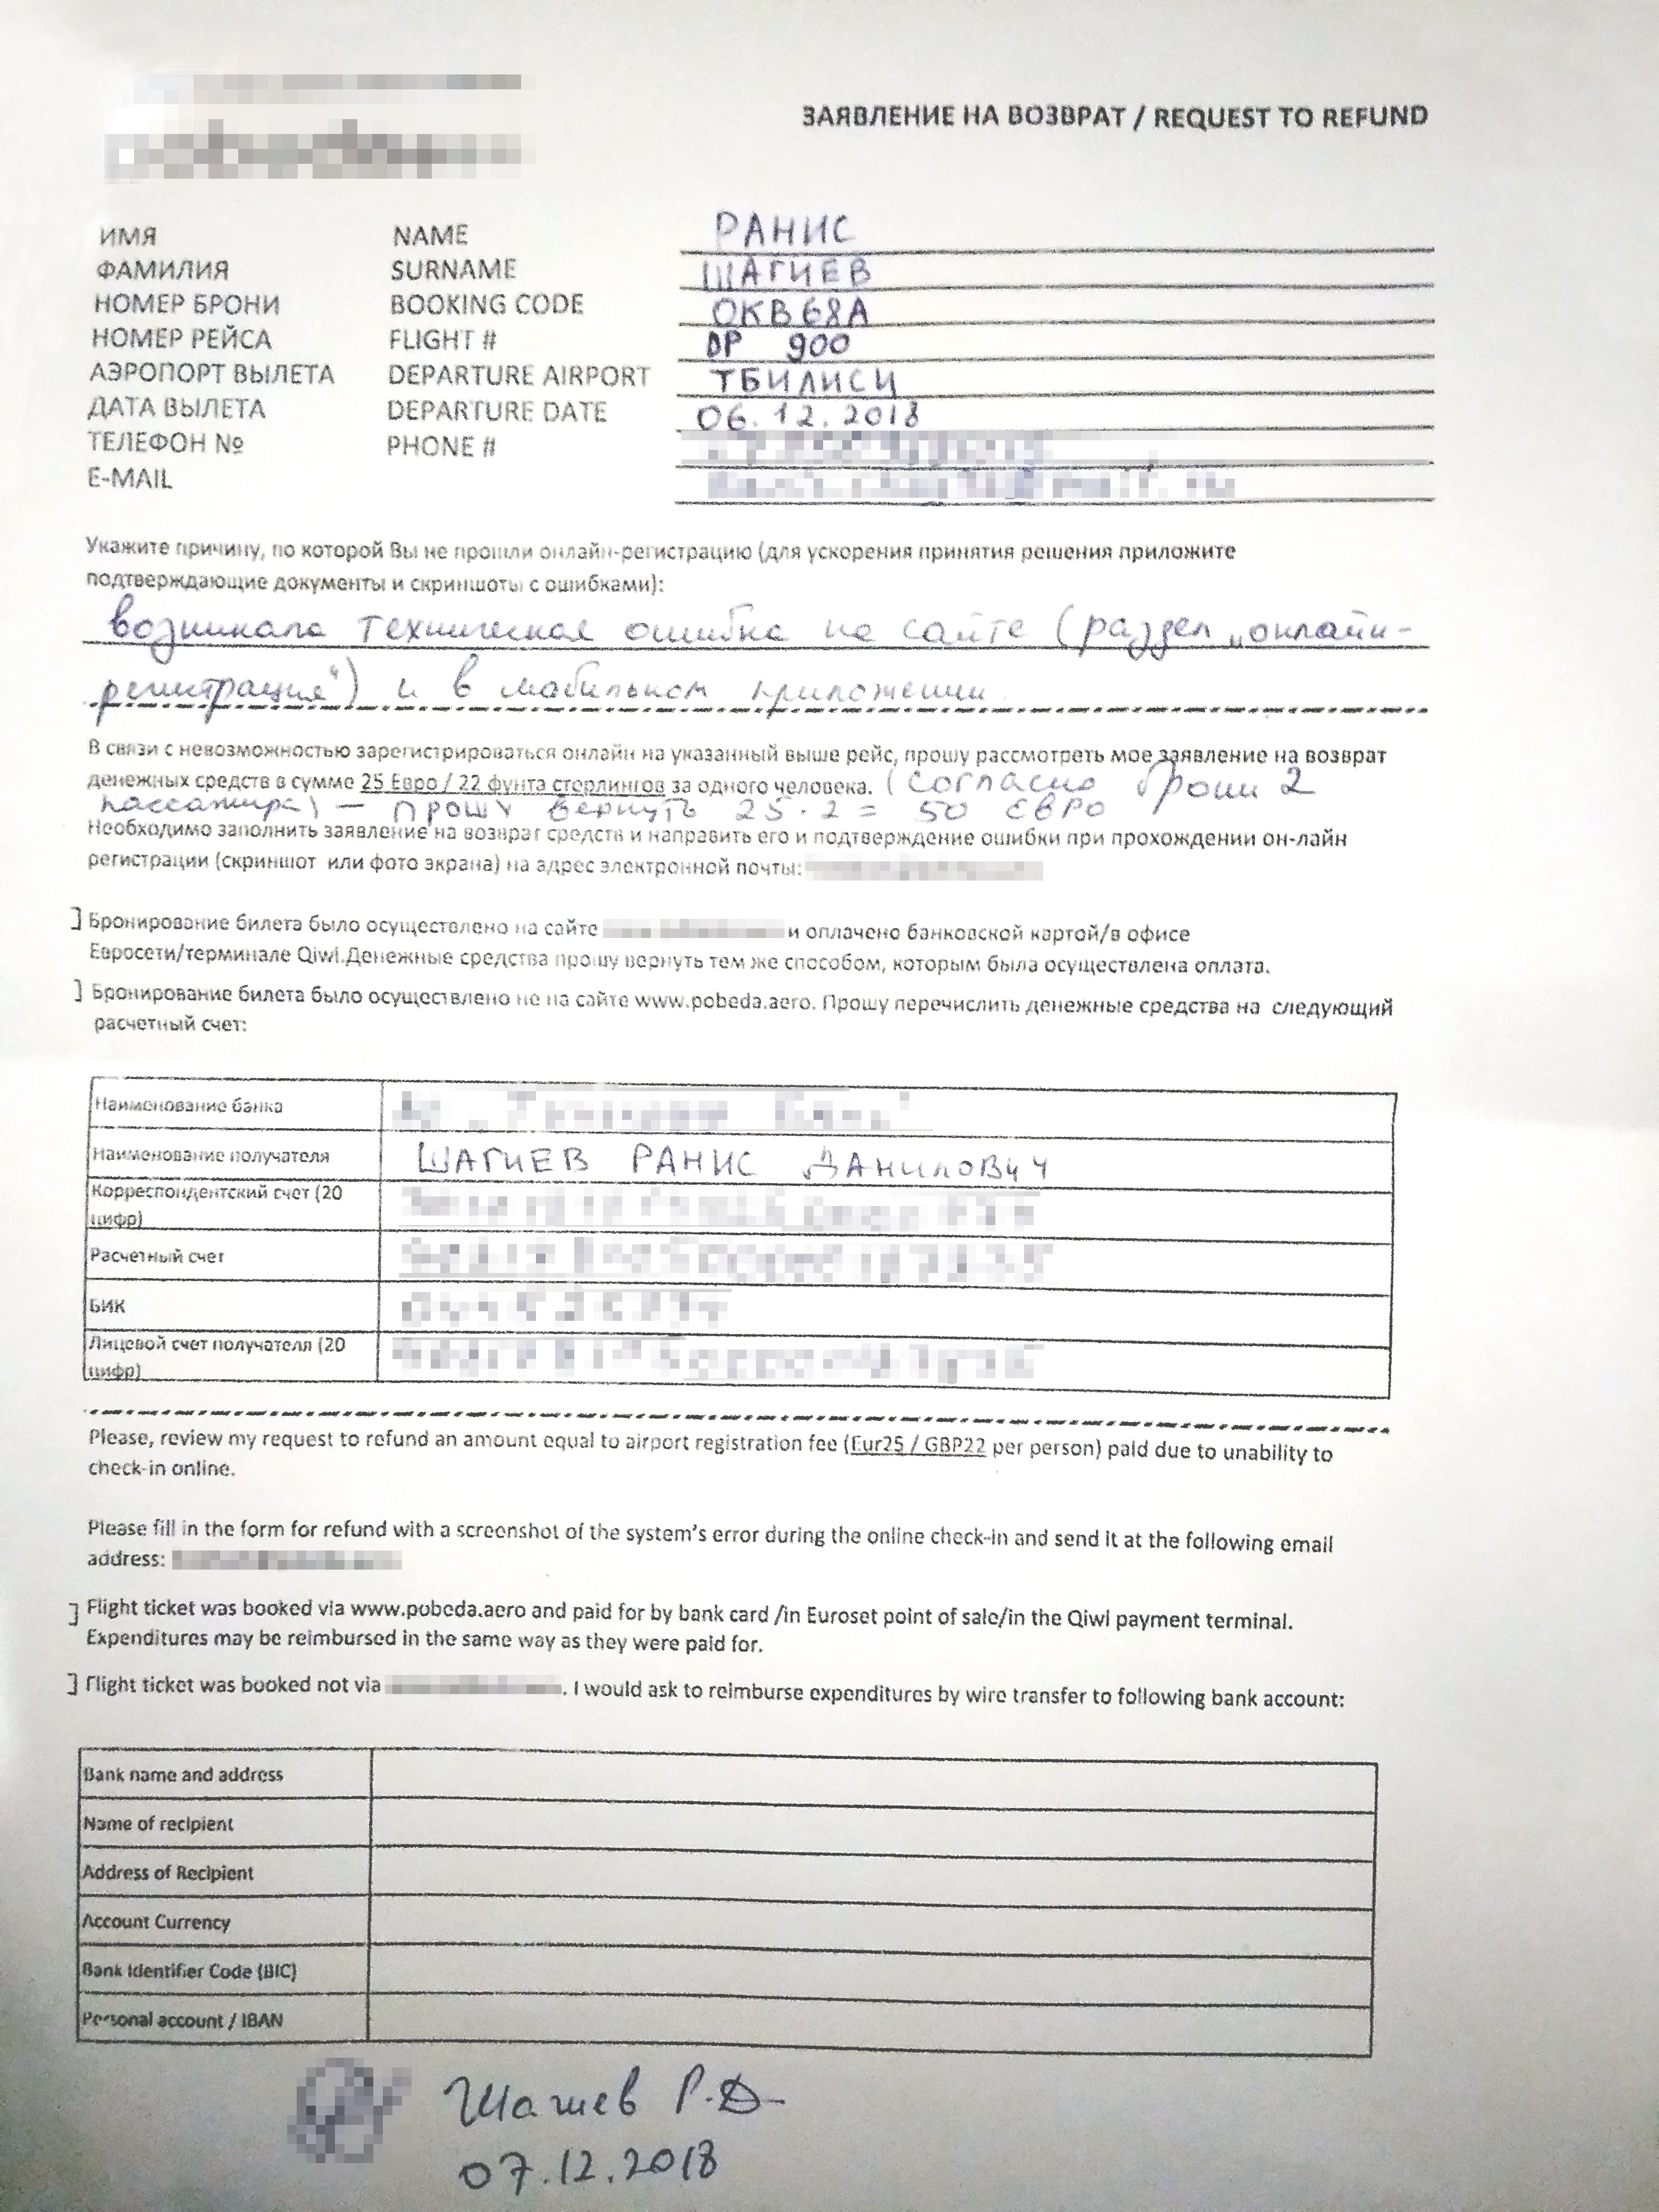 ЗАЯВЛЕНИЕ НА ВОЗВРАТ / REQUEST TO REFUND
ИМЯ NAME РАНИС
ФАМИЛИЯ SURNAME ШАГИЕВ
НОМЕР БРОНИ BOOKING CODE OKB68A
НОМЕР РЕЙСА FLIGHT # DP 900
АЭРОПОРТ ВЫЛЕТА DEPARTURE AIRPORT ТБИЛИСИ
ДАТА ВЫЛЕТА DEPARTURE DATE 06.12.2018
ТЕЛЕФОН № PHONE #
E-MAIL
Укажите причину, по которой Вы не прошли онлайн-регистрацию (для ускорения принятия решения приложите
подтверждающие документы и скриншоты с ошибками):
возникала техническая ошибка на сайте (раздел „онлайн-
регистрация“) и в мобильном приложении
В связи с невозможностью зарегистрироваться онлайн на указанный выше рейс, прошу рассмотреть мое заявление на возврат
денежных средств в сумме 25 Евро / 22 фунта стерлингов за одного человека. (согласно брони 2
пассажира) — прошу вернуть 25·2 = 50 ЕВРО
Необходимо заполнить заявление на возврат средств и направить его и подтверждение ошибки при прохождении он-лайн
регистрации (скриншот или фото экрана) на адрес электронной почты:
] Бронирование билета было осуществлено на сайте и оплачено банковской картой/в офисе
Евросети/терминале Qiwi.Денежные средства прошу вернуть тем же способом, которым была осуществлена оплата.
] Бронирование билета было осуществлено не на сайте www.pobeda.aero. Прошу перечислить денежные средства на следующий
расчетный счет:
Наименование банка
Наименование получателя ШАГИЕВ РАНИС ДАНИЛОВИЧ
Корреспондентский счет (20
цифр)
Расчетный счет
БИК
Лицевой счет получателя (20
цифр)
Please, review my request to refund an amount equal to airport registration fee (Eur25 / GBP22 per person) paid due to unability to
check-in online.
Please fill in the form for refund with a screenshot of the system's error during the online check-in and send it at the following email
address:
] Flight ticket was booked via www.pobeda.aero and paid for by bank card /in Euroset point of sale/in the Qiwi payment terminal.
Expenditures may be reimbursed in the same way as they were paid for.
] Flight ticket was booked not via . I would ask to reimburse expenditures by wire transfer to following bank account:
Bank name and address
Name of recipient
Address of Recipient
Account Currency
Bank Identifier Code (BIC)
Personal account / IBAN
Шагиев Р.Д.
07.12.2018